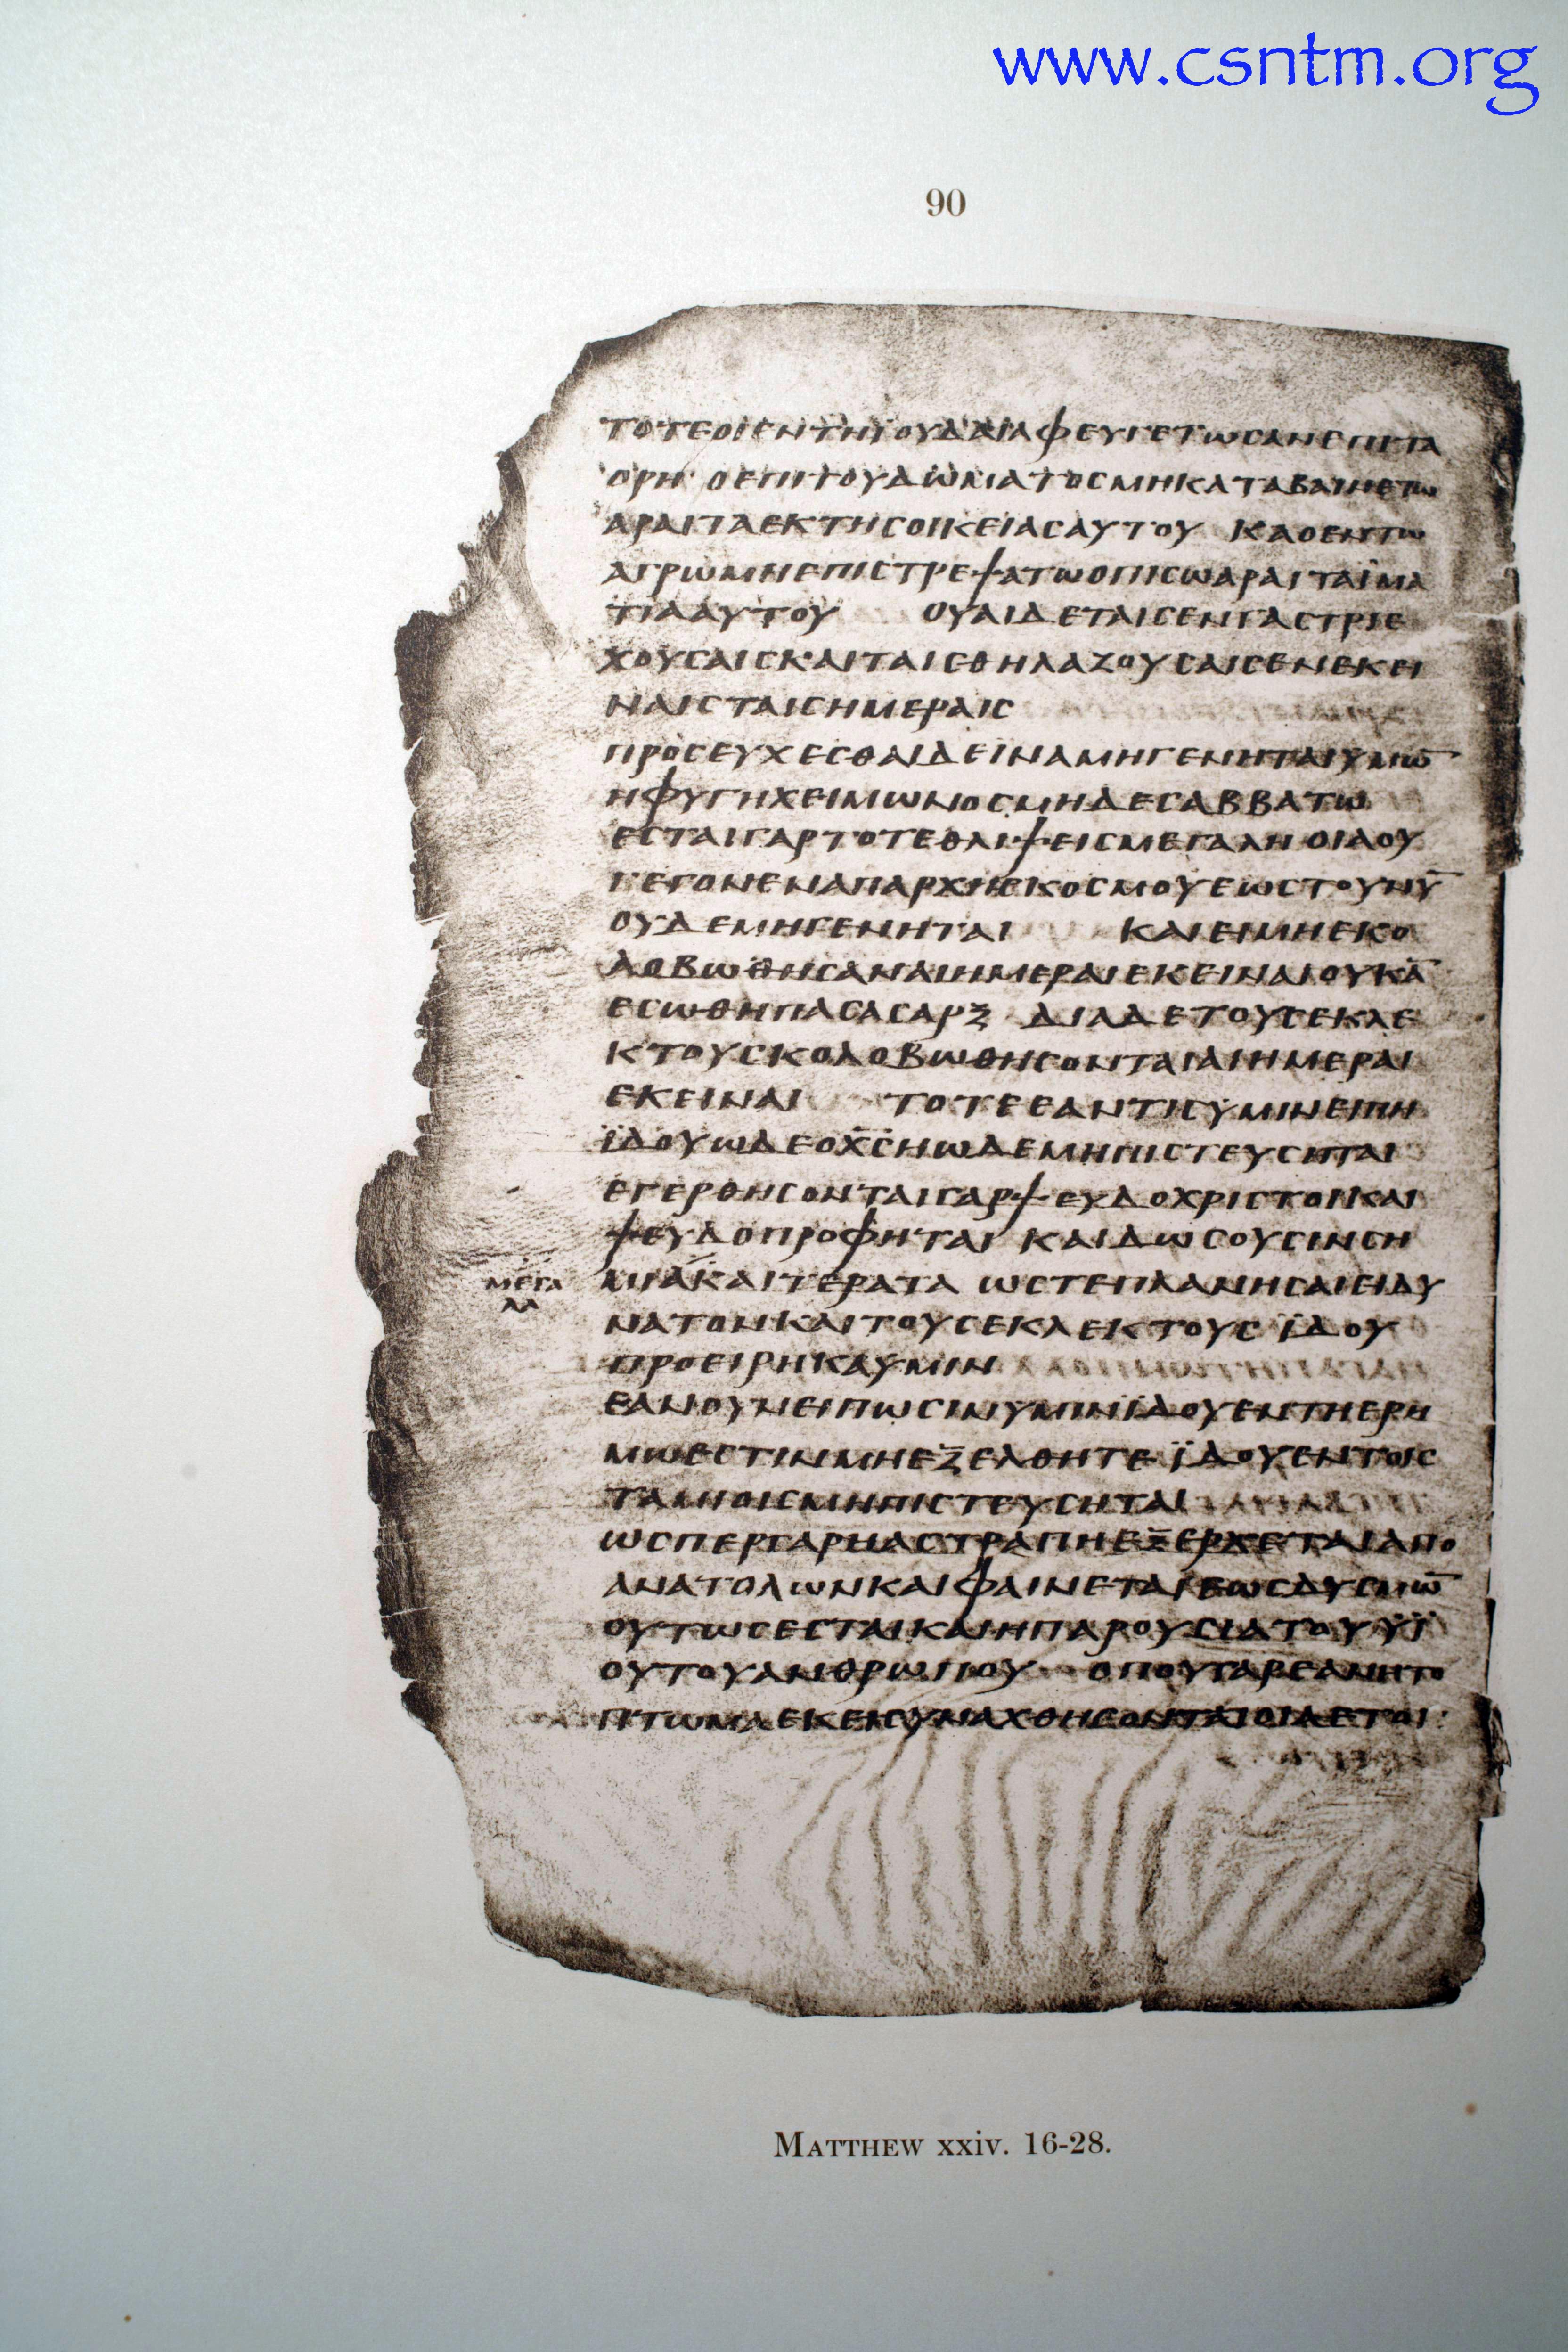 www.csntm.org
90
ΤΟΤΕΟΙΕΝΤΗΪΟΥΔΑΙΑΦΕΥΓΕΤΩϹΑΝΕΠΙΤΑ
ΟΡΗ ΟΕΠΙΤΟΥΔΩΜΑΤΟϹΜΗΚΑΤΑΒΑΙΝΕΤΩ
ΑΡΑΙΤΑΕΚΤΗϹΟΙΚΕΙΑϹΑΥΤΟΥ ΚΑΟΕΝΤΩ
ΑΓΡΩΜΗΕΠΙϹΤΡΕΨΑΤΩΟΠΙϹΩΑΡΑΙΤΑΪΜΑ
ΤΙΑΑΥΤΟΥ ΟΥΑΙΔΕΤΑΙϹΕΝΓΑϹΤΡΙΕ
ΧΟΥϹΑΙϹΚΑΙΤΑΙϹΘΗΛΑΖΟΥϹΑΙϹΕΝΕΚΕΙ
ΝΑΙϹΤΑΙϹΗΜΕΡΑΙϹ
ΠΡΟϹΕΥΧΕϹΘΑΙΔΕΙΝΑΜΗΓΕΝΗΤΑΙΥΜΩ̅
ΗΦΥΓΗΧΕΙΜΩΝΟϹΜΗΔΕϹΑΒΒΑΤΩ
ΕϹΤΑΙΓΑΡΤΟΤΕΘΛΙΨΕΙϹΜΕΓΑΛΗΟΙΑΟΥ
ΓΕΓΟΝΕΝΑΠΑΡΧΗϹΚΟϹΜΟΥΕΩϹΤΟΥΝΥ̅
ΟΥΔΕΜΗΓΕΝΗΤΑΙ ΚΑΙΕΙΜΗΕΚΟ
ΛΟΒΩΘΗϹΑΝΑΙΗΜΕΡΑΙΕΚΕΙΝΑΙΟΥΚΑ̅
ΕϹΩΘΗΠΑϹΑϹΑΡΞ ΔΙΑΔΕΤΟΥϹΕΚΛΕ
ΚΤΟΥϹΚΟΛΟΒΩΘΗϹΟΝΤΑΙΑΙΗΜΕΡΑΙ
ΕΚΕΙΝΑΙ ΤΟΤΕΕΑΝΤΙϹΥΜΙΝΕΙΠΗ
ΪΔΟΥΩΔΕΟΧ̅Ϲ̅ΗΩΔΕΜΗΠΙϹΤΕΥϹΗΤΑΙ
ΕΓΕΡΘΗϹΟΝΤΑΙΓΑΡΨΕΥΔΟΧΡΙϹΤΟΙΚΑΙ
ΨΕΥΔΟΠΡΟΦΗΤΑΙ ΚΑΙΔΩϹΟΥϹΙΝϹΗ
ΜΕΓΑ
ΛΑ
ΜΙΑΚΑΙΤΕΡΑΤΑ ΩϹΤΕΠΛΑΝΗϹΑΙΕΙΔΥ
ΝΑΤΟΝΚΑΙΤΟΥϹΕΚΛΕΚΤΟΥϹ ΪΔΟΥ
ΠΡΟΕΙΡΗΚΑΥΜΙΝ
ΕΑΝΟΥΝΕΙΠΩϹΙΝΥΜΙΝΪΔΟΥΕΝΤΗΕΡΗ
ΜΩΕϹΤΙΝΜΗΕΞΕΛΘΗΤΕ ΪΔΟΥΕΝΤΟΙϹ
ΤΑΜΙΟΙϹΜΗΠΙϹΤΕΥϹΗΤΑΙ
ΩϹΠΕΡΓΑΡΗΑϹΤΡΑΠΗΕΞΕΡΧΕΤΑΙΑΠΟ
ΑΝΑΤΟΛΩΝΚΑΙΦΑΙΝΕΤΑΙΕΩϹΔΥϹΜΩ̅
ΟΥΤΩϹΕϹΤΑΙΚΑΙΗΠΑΡΟΥϹΙΑΤΟΥΫΪ
ΟΥΤΟΥΑΝΘΡΩΠΟΥ ΟΠΟΥΓΑΡΕΑΝΗΤΟ
ΠΤΩΜΑΕΚΕΙϹΥΝΑΧΘΗϹΟΝΤΑΙΟΙΑΕΤΟΙ
MATTHEW xxiv. 16-28.